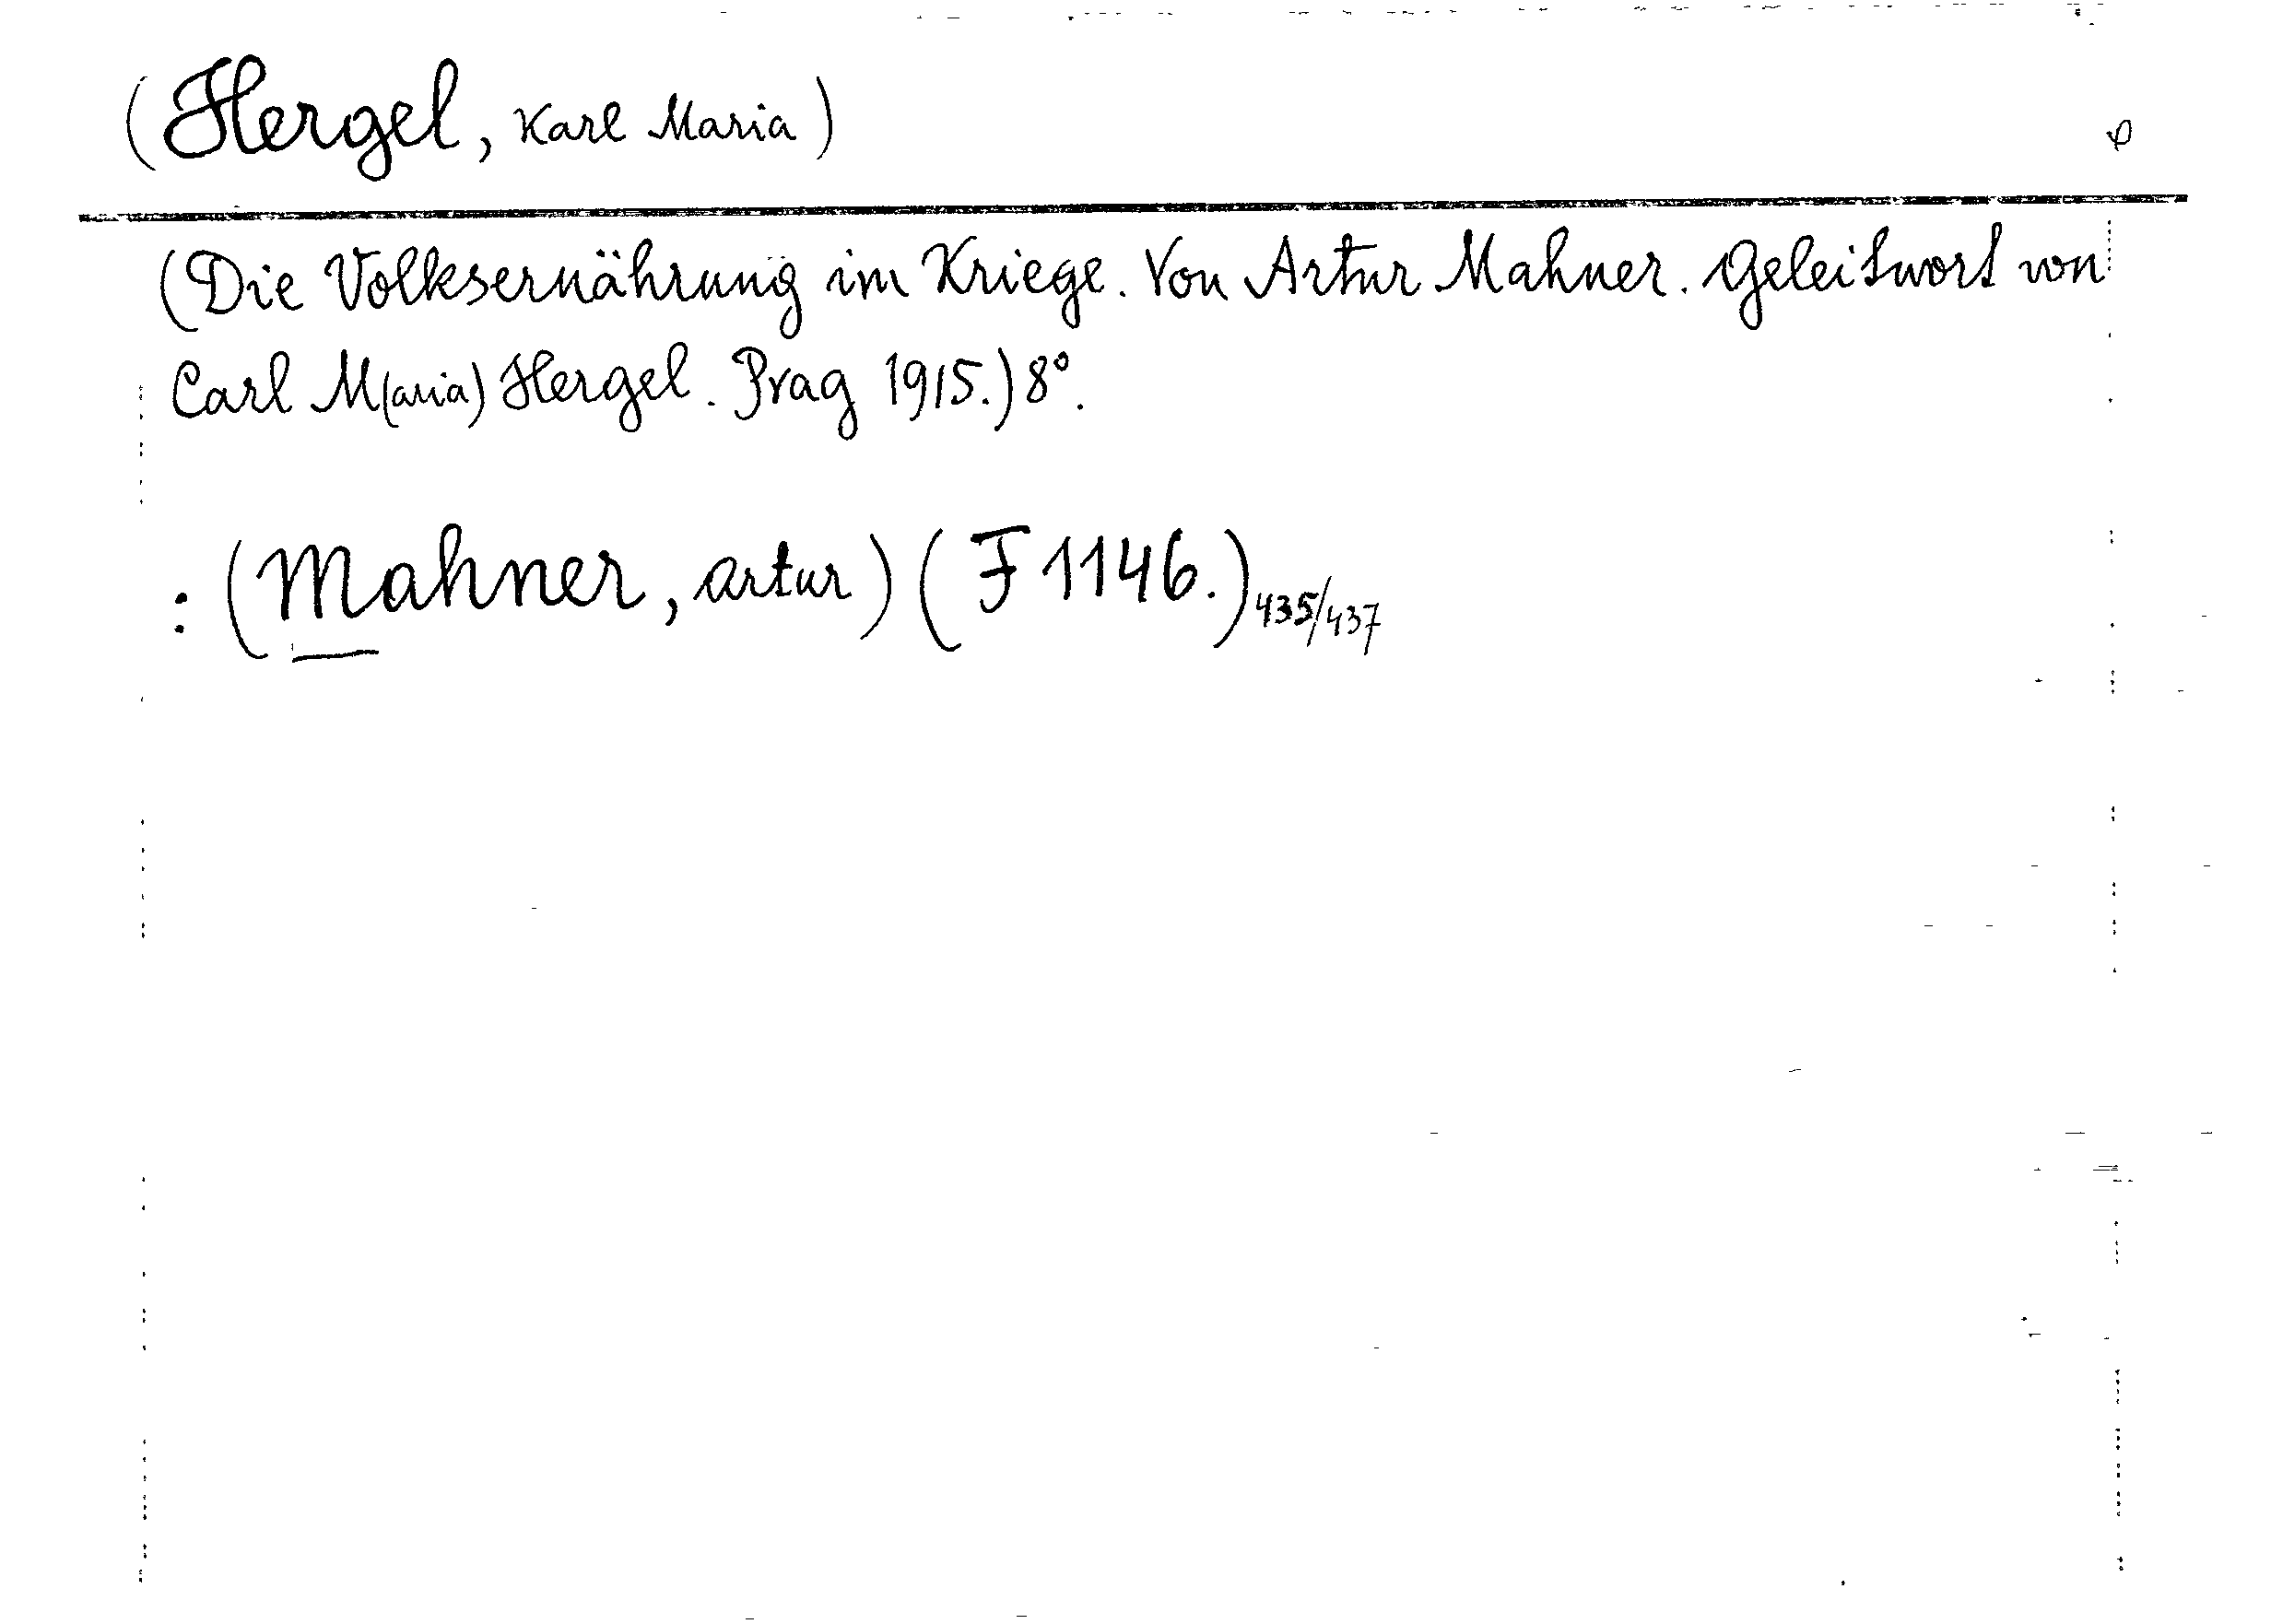 (Hergel, Karl Maria)
(Die Volksernährung im Kriege. Von Artur Mahner. Geleitwort von
Carl M(aria) Hergel. Prag 1915.) 8°.
: (Mahner, Artur) (F 1146.) 435/437